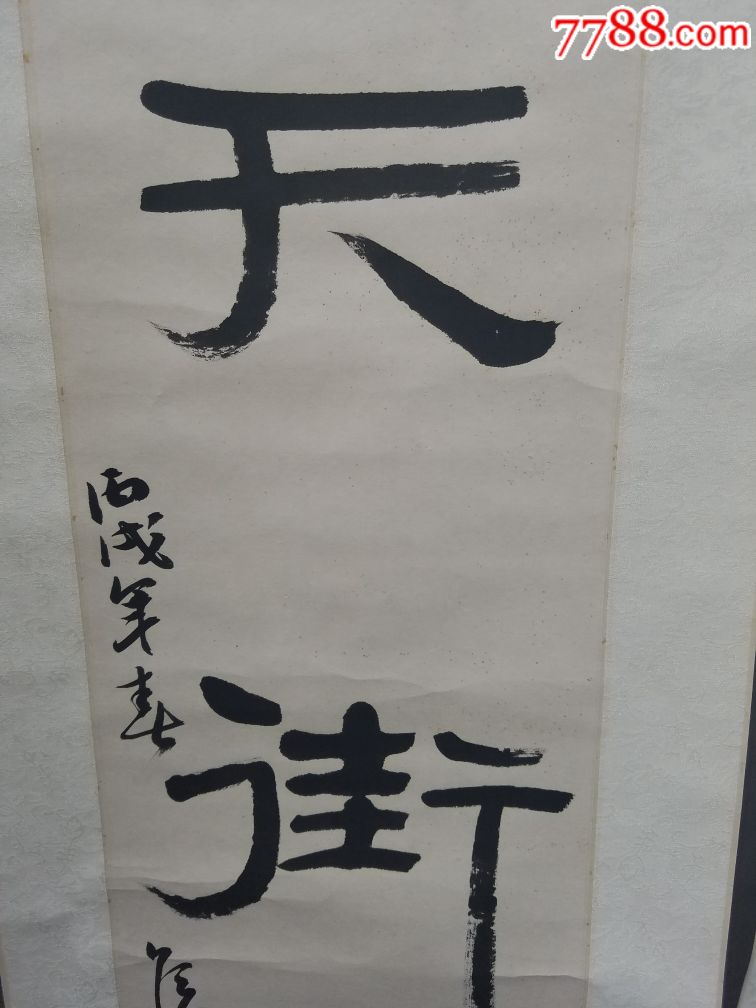 7788.com
天街
丙戌年春